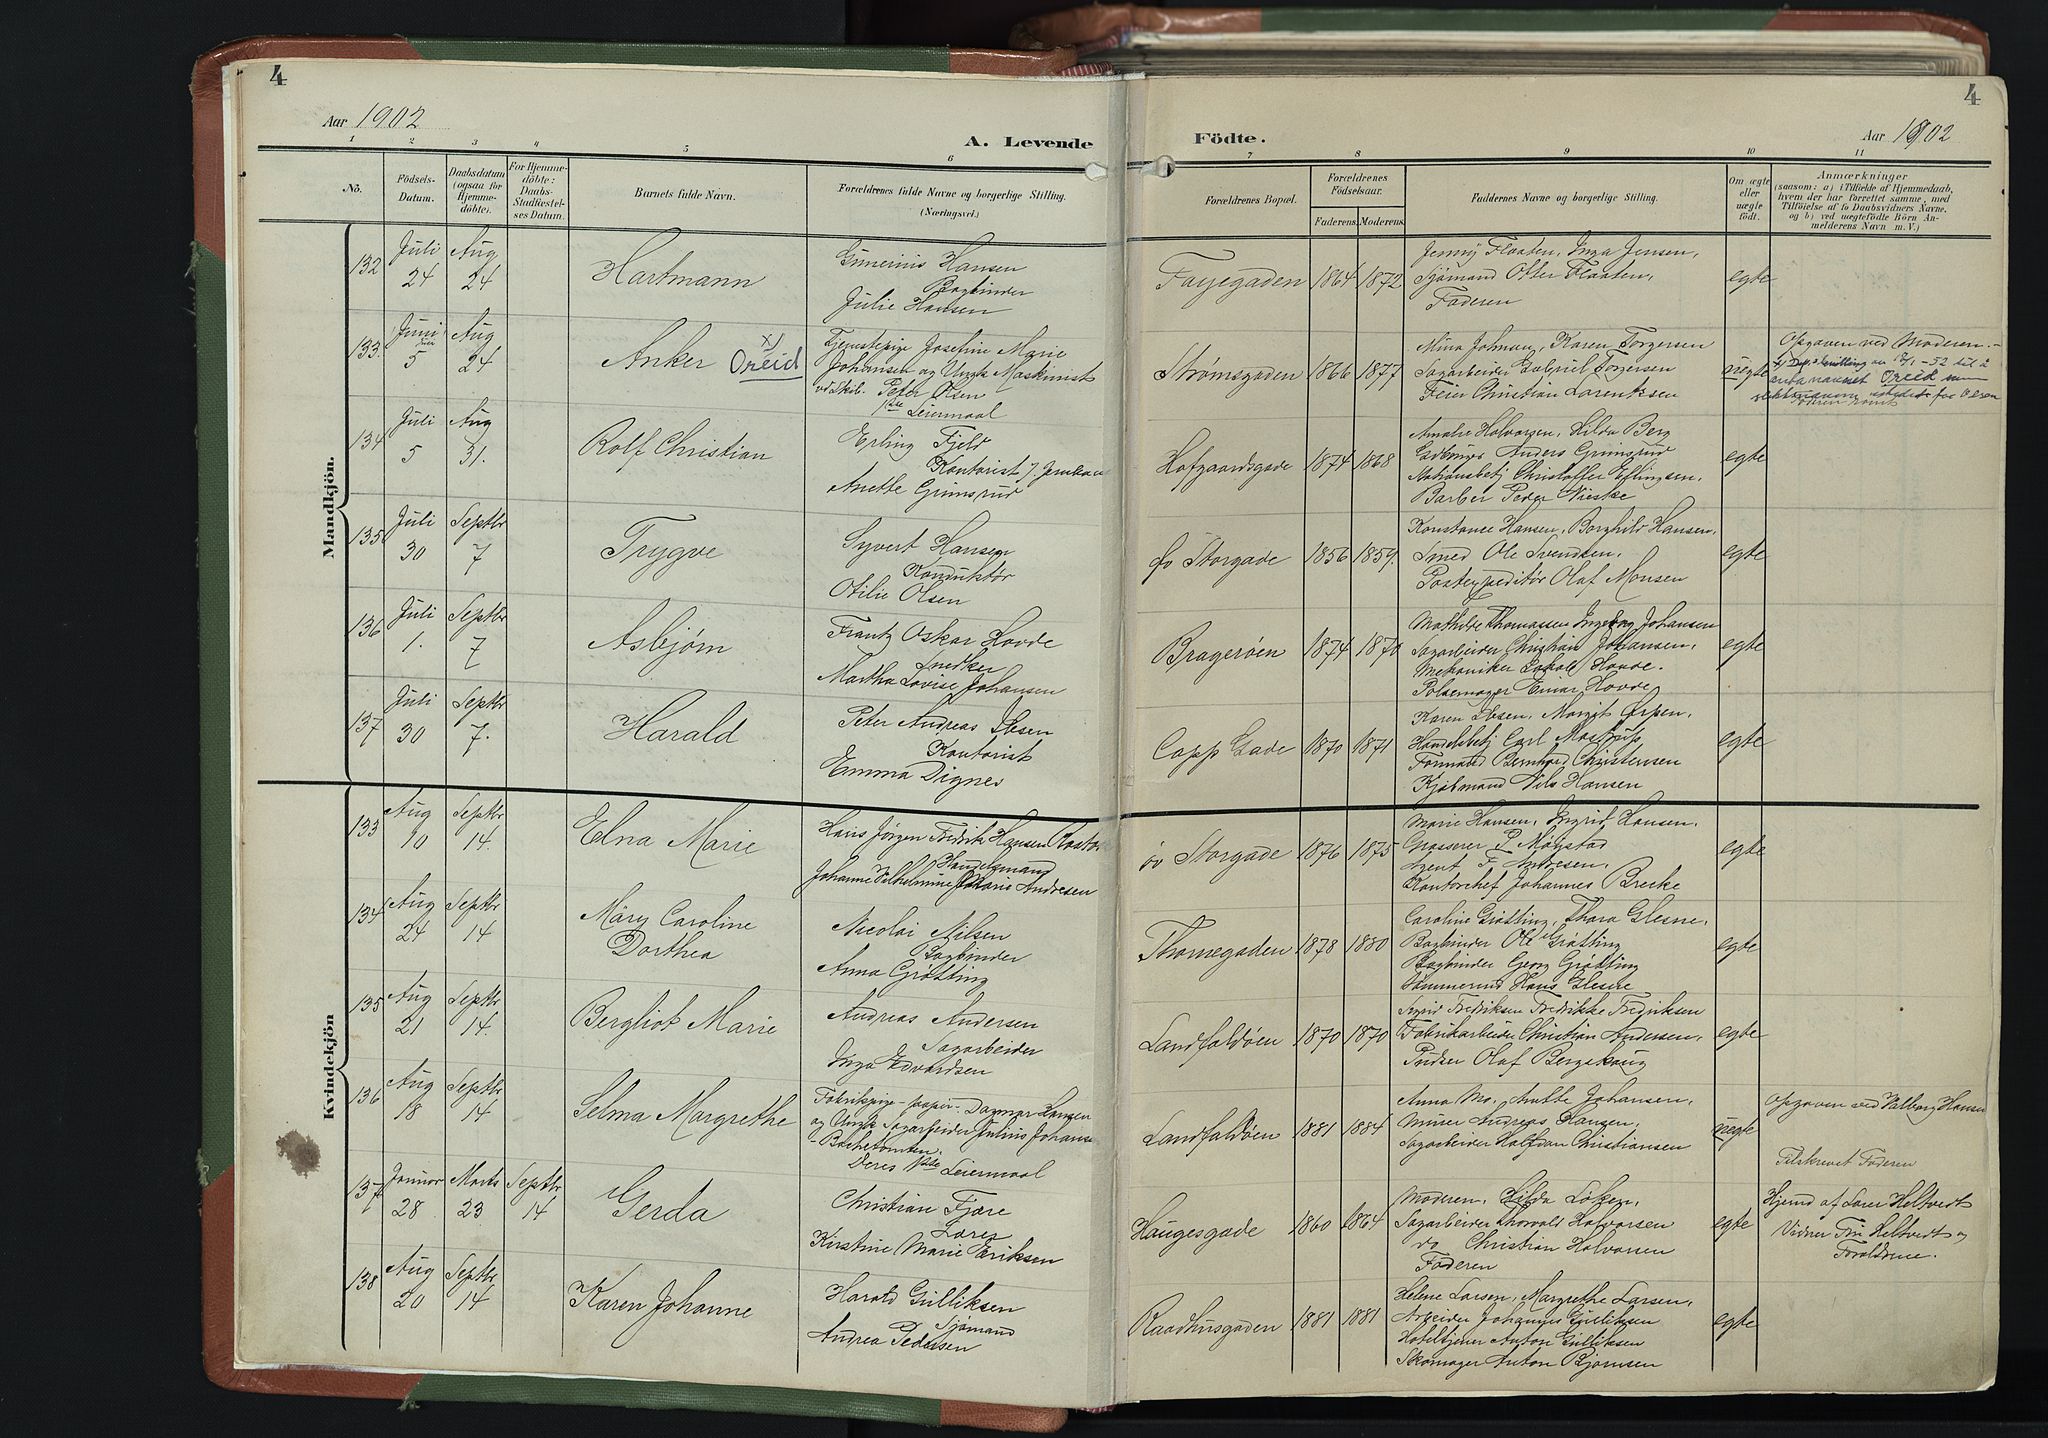 4
Aar 1902
A. Levende
1 2 3 4 5 6
No.
Födsels-Datum.
Daabsdatum (ogsaa for Hjemmedöbte).
For Hjemmedöbte: Daabs-Stadfæstelses Datum.
Barnets fulde Navn.
Forældrenes fulde Navne og borgerlige Stilling.
(Næringsvei.)
Mandkjön.
132 Juli 24 Aug 24 Hartmann
Gunerius Hansen
Bogbinder
Julie Hansen
133. Juni 5 Aug 24 Anker x) Oreid
Tjenestepige Josefine Marie
Johansen og Ungk Maskinist
Peter Olsen
1ste Leiermaal
134 Juli 5 Aug 31. Rolf Christian
Erling Fjeld
Kontorist
Anette Grimsrud
135 Juli 30 Septbr 7 Trygve
Syvert Hansen
Konduktør
Otilie Olsen
136 Juli 1. Septbr 7 Asbjørn
Frantz Oskar Hovde
Snedker
Martha Lovise Johansen
137 Juli 30 Septbr 7. Harald
Peter Andreas Ibsen
Kontorist
Emma Dignes
Kvindekjön
133 Aug 10 Septbr 14. Elna Marie
Hans Jørgen Fredrik Hansen
Handelsmand
Johanne Vilhelmine Marie Andresen
134 Aug 24 Septbr 14 Mary Caroline
Dorthea
Nicolai Nilsen
Bogbinder
Anna Grøtting
135 Aug 21 Septbr 14. Bergliot Marie
Andreas Andersen
Sagarbeider
Inga Edvardsen
136 Aug 18 Septbr 14 Selma Margrethe
Fabrikpige Dagmar
og Ungk Sagarbeider Julius Johans
Deres 1ste Leiermaal
137 Januar 28 Marts 23 Septbr 14 Gerda
Christian Fjære
Kirstine Marie Eriksen
138 Aug 20 Septbr 14 Karen Johanne
Harald Gulliksen
Sjømand
Andrea Pedersen
4
Födte.
Aar 1902
7 8 9 10 11
Forældrenes Bopæl.
Forældrenes Födselsaar.
Faderens. Moderens.
Faddernes Navne og borgerlige Stilling.
Om ægte eller uægte födt.
Anmærkninger
(saasom: a) i Tilfælde af Hjemmedaab,
hvem der har forrettet samme, med
Tilföielse af to Daabsvidners Navne,
og b) ved uægtefödte Börn An-
melderens Navn m. V.)
Fayegaden 1864 1872
Jenny Flaaten, Inga Jensen,
Sjømand Otter Flaaten,
Faderen
egte
Strømsgaden 1866 1877
Karen Torgersen
Sagarbeider Gabriel Torgersen
Feier Christian Lorentzen
uegte
Opgaven ved Moderen.
x) Ifp. bevilling av 12/1 - 52 til å
anta navnet Oreid som
slektsnavn istedetfor Olsen
Hofgaardsgade 1874 1868
Amalie Halvorsen, Hilda Berg
Anders Grimsrud
Stationsbetj Christoffer
Barber Peder Nieske
egte
øv Storgade 1856 1859.
Konstance Hansen, Borghild Hansen,
Smed Ole Svendsen,
Postexpeditør Olaf Monsen
egte
Bragerøen 1874 1870
Mathilde Thomassen Ingeborg Johansen
Sagarbeider Christian Johansen,
Mekaniker Hovde.
Pølsemager Einar Hovde
egte
Copp Gade 1870 1871
Karen Ibsen, Margit Ørpen,
Handelsbetj Carl Mostrup
Formand Bernhard Christensen
Kjøbmand Nils Hansen
egte
øv Storgade 1876 1875
Marie Hansen, Ingrid Hansen.
Grosserer P. Møystad
Agent F. Andresen,
Kontorchef Johannes Brecke
egte
Thornegaden 1878 1880
Caroline Grøtting, Thora Glesne,
Bogbinder Ole Grøtting
Bogbinder Georg Grøtting
Tømmermd Hans Glesne
egte
Landfaldøen 1870 1870
Sigrid Fredriksen Fredrikke Fredriksen
Fabrikarbeider Christian Andersen,
Pudser Olaf Bergskaug
egte
Landfaldøen 1881 1884
Anna Mo, Anette Johansen,
Murer Andreas Hansen,
Sagarbeider Halfdan Christiansen
uegte
Opgaven ved Valborg Hansen
Tilskrevet Faderen
Haugesgade 1860 1864
Moderen, Hilda Løken,
Sagarbeider Thorvald Halvorsen
do Christian Halvorsen
Faderen
egte
Hjemd af Lærer Heltvedt
Vidner Fru Heltvedt og
Forældrene.
Raadhusgaden 1881 1881
Helene Larsen, Margrethe Larsen,
Arbeider Johannes Gulliksen
Hoteltjener Anton Gulliksen
Skomager Anton Bjørnsen
egte